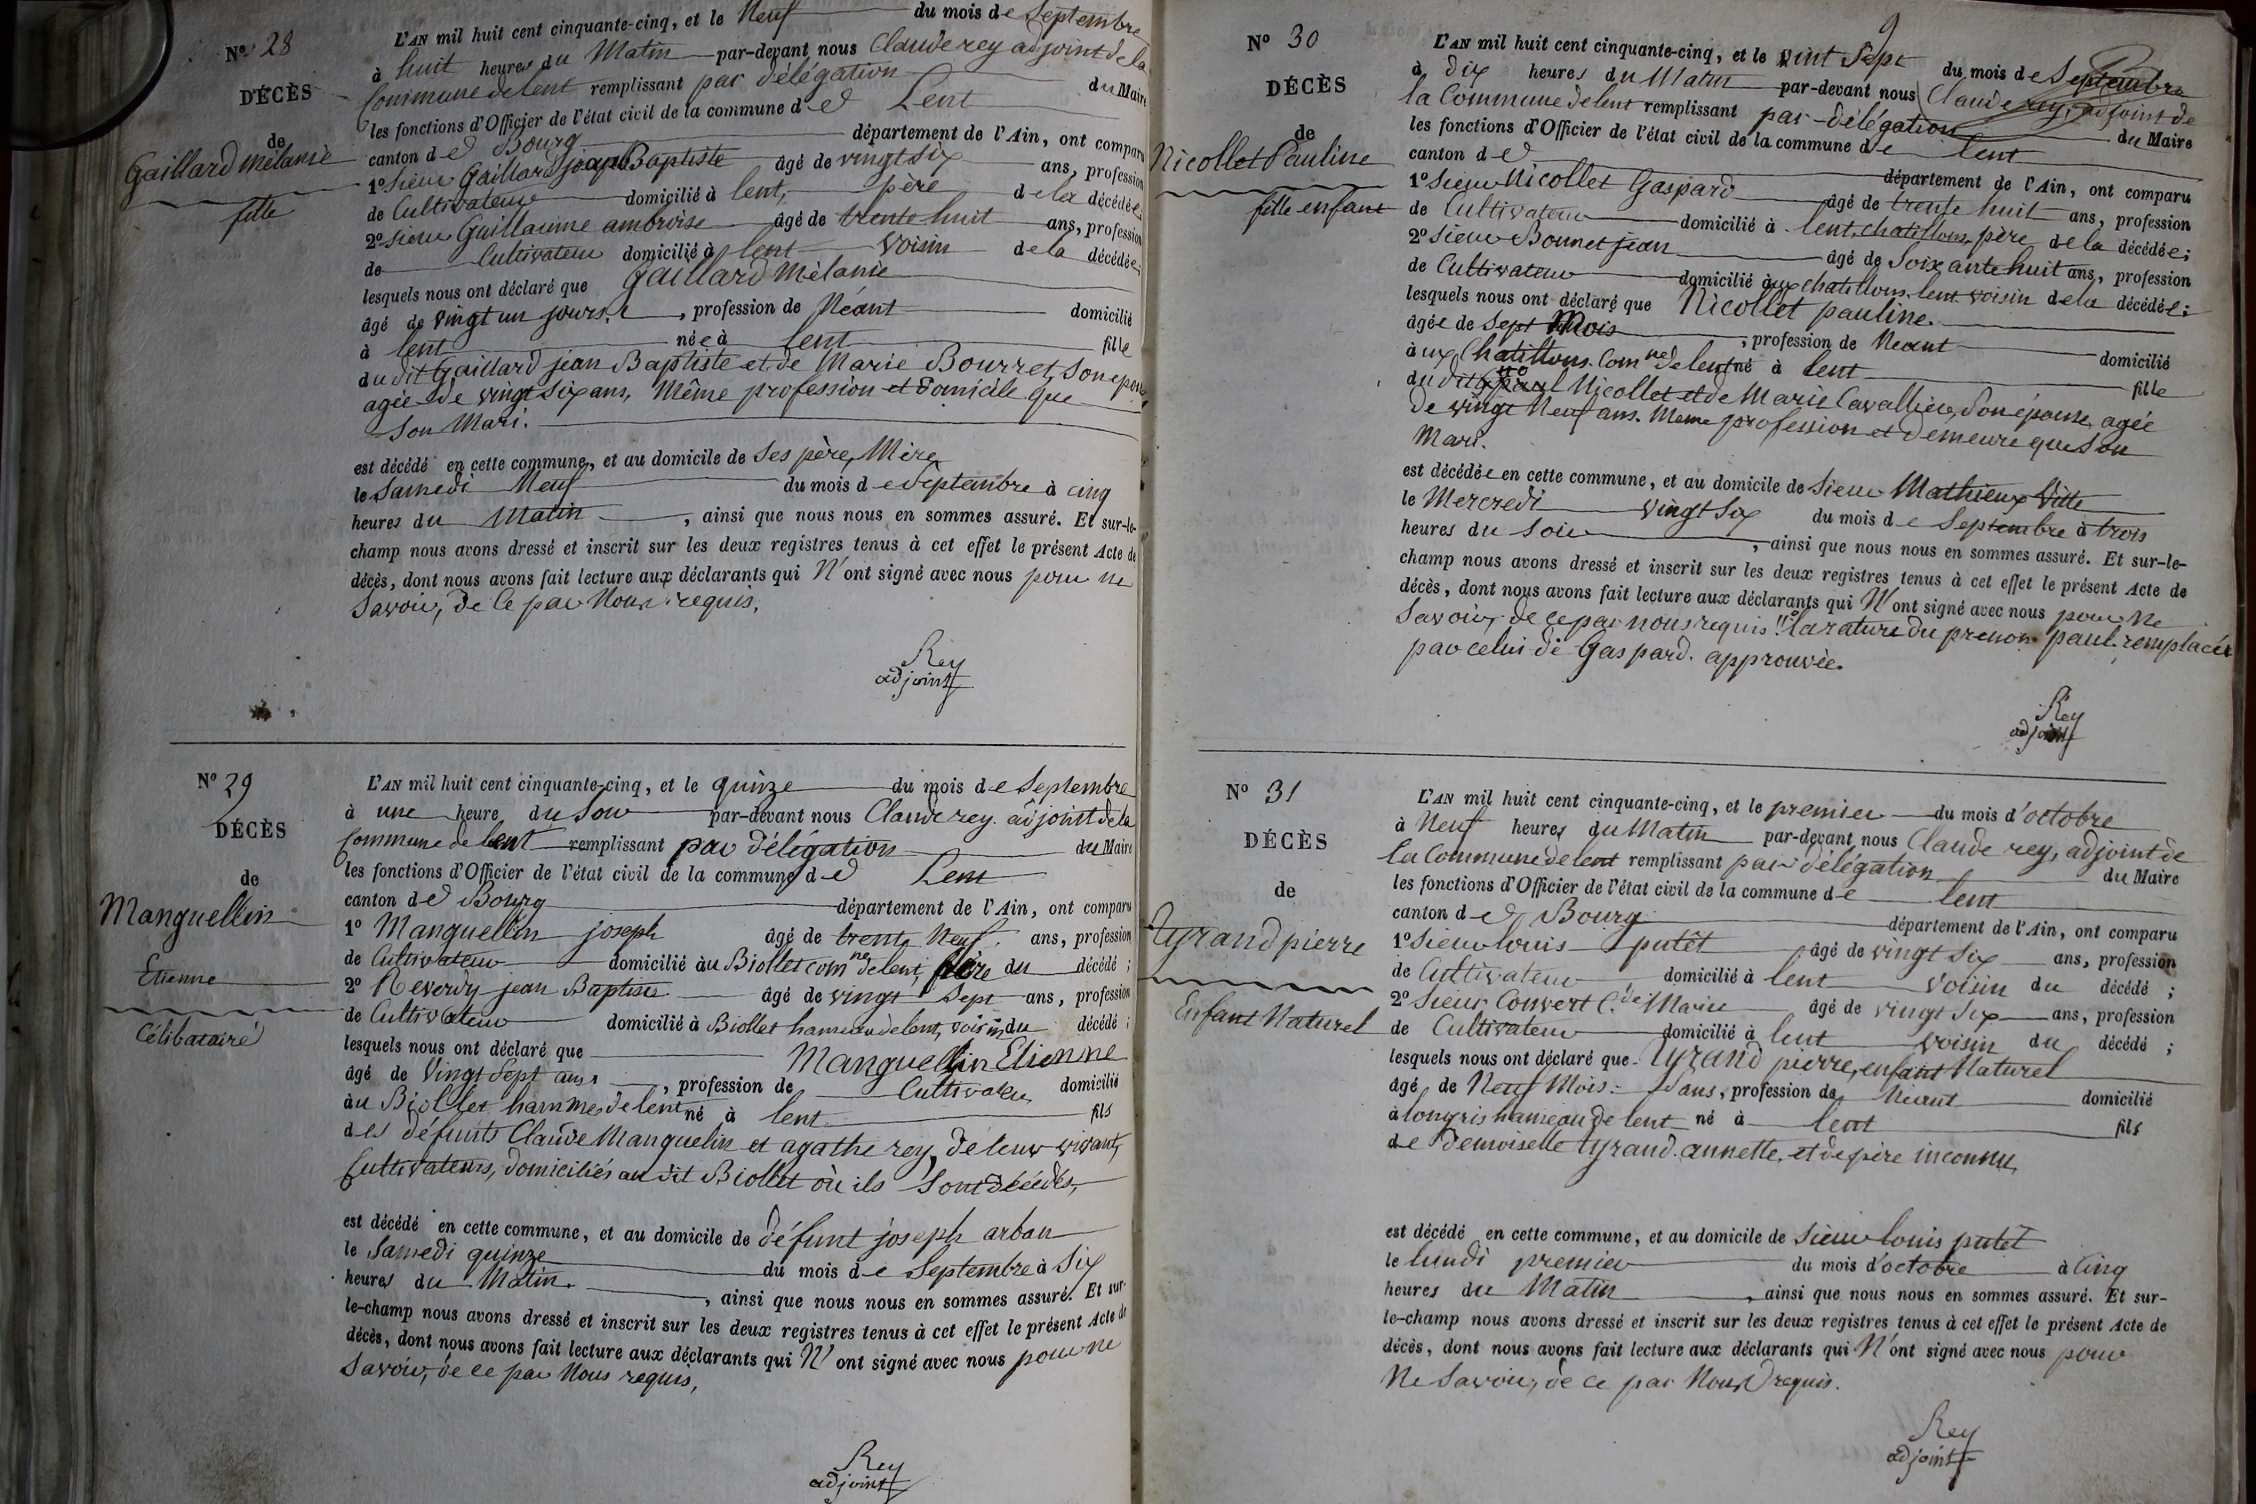 Nº 28
DÉCÈS
de
Gaillard mélanie
fille
L'AN mil huit cent cinquante-cinq, et le Neuf du mois de Septembre
à huit heures du Matin par-devant nous Claude rey adjoint de la
Commune de lent remplissant par délégation du Maire
les fonctions d'Officier de l'état civil de la commune de Lent
canton de Bourg département de l'Ain, ont comparu
1º Sieur Gaillard jean Baptiste âgé de vingt six ans, profession
de Cultivateur domicilié à lent, père de la décédée;
2º Sieur Guillaume ambroise âgé de trente huit ans, profession
de Cultivateur domicilié à lent voisin de la décédée;
lesquels nous ont déclaré que Gaillard Mélanie
âgé de vingt un jours, profession de Néant domicilié
à lent née à lent fille
du dit Gaillard jean Baptiste et de Marie Bourret, Son épouse,
agée de vingt six ans, Même profession et Domicile que
Son Mari.
est décédé en cette commune, et au domicile de Ses père, Mère
le Samedi Neuf du mois de Septembre à cinq
heures du Matin, ainsi que nous nous en sommes assuré. Et sur-le-
champ nous avons dressé et inscrit sur les deux registres tenus à cet effet le présent Acte de
décès, dont nous avons fait lecture aux déclarants qui N'ont signé avec nous pour ne
Savoir, de Ce par Nous requis.
Rey
adjoint
Nº 29
DÉCÈS
de
Manguellin
Etienne
Célibataire
L'AN mil huit cent cinquante-cinq, et le quinze du mois de Septembre
à une heure du Soir par-devant nous Claude rey adjoint de la
Commune de lent remplissant par délégation du Maire
les fonctions d'Officier de l'état civil de la commune de Lent
canton de Bourg département de l'Ain, ont comparu
1º Manguellin joseph âgé de trente Neuf ans, profession
de Cultivateur domicilié àu Biollet com ne de lent, frère du décédé;
2º Reverdy jean Baptiste âgé de vingt Sept ans, profession
de Cultivateur domicilié à Biollet hameau de lent, voisin du décédé;
lesquels nous ont déclaré que Manguellin Etienne
âgé de Vingt Sept ans, profession de Cultivateur domicilié
àu Biollet hammeau de lent né à lent fils
des défunts Claude Manguelin et agathe rey, de leur vivant,
Cultivateurs, domiciliés au dit Biollet où ils Sont décédés,
est décédé en cette commune, et au domicile de défunt joseph arban
le Samedi quinze du mois de Septembre à Six
heures du Matin, ainsi que nous nous en sommes assuré. Et sur-
le-champ nous avons dressé et inscrit sur les deux registres tenus à cet effet le présent Acte de
décès, dont nous avons fait lecture aux déclarants qui N'ont signé avec nous pour ne
Savoir, de ce par Nous requis,
Rey
adjoint
9
Nº 30
DÉCÈS
de
Nicollet Pauline
fille enfant
L'AN mil huit cent cinquante-cinq, et le vint Sept du mois de Septembre
à dix heures du Matin par-devant nous Claude rey, adjoint de
la Commune de lent remplissant par délégation du Maire
les fonctions d'Officier de l'état civil de la commune de lent
canton de département de l'Ain, ont comparu
1º Sieur Nicollet Gaspard âgé de trente huit ans, profession
de Cultivateur domicilié à lent, chatillons, père de la décédée;
2º Sieur Bonnet jean âgé de Soixante huit ans, profession
de Cultivateur domicilié àux chatillons, lent voisin de la décédée;
lesquels nous ont déclaré que Nicollet pauline.
âgée de Sept Mois, profession de Néant domicilié
àux Chatillons Com ne de lent né à lent fille
du dit paul Nicollet et de Marie Cavallier, Son épouse, agée
de vingt Neuf ans. Meme profession et demeure que Son
Mari.
est décédée en cette commune, et au domicile de Sieur Mathieux Vitte
le Mercredi vingt Six du mois de Septembre à trois
heures du Soir, ainsi que nous nous en sommes assuré. Et sur-le-
champ nous avons dressé et inscrit sur les deux registres tenus à cet effet le présent Acte de
décès, dont nous avons fait lecture aux déclarants qui N'ont signé avec nous pour Ne
Savoir, de ce par nous requis " la rature du prenom paul remplacé
par celui de Gaspard. approuvée.
Rey
adjoint
Nº 31
DÉCÈS
de
Tyrand pierre
Enfant Naturel
L'AN mil huit cent cinquante-cinq, et le premier du mois d'octobre
à Neuf heures du Matin par-devant nous Claude rey, adjoint de
la Commune de lent remplissant par délégation du Maire
les fonctions d'Officier de l'état civil de la commune de lent
canton de Bourg département de l'Ain, ont comparu
1º Sieur louis putêt âgé de vingt Six ans, profession
de Cultivateur domicilié à lent voisin du décédé;
2º Sieur Convert C. de Marie âgé de vingt Six ans, profession
de Cultivateur domicilié à lent voisin du décédé;
lesquels nous ont déclaré que Tyrand pierre, enfant Naturel
âgé de Neuf Mois ans, profession de Néant domicilié
à longris hameau de lent né à lent fils
de demoiselle tyrand annette, et de père inconnu,
est décédé en cette commune, et au domicile de Sieur louis putêt
le lundi premier du mois d'octobre à Cinq
heures du Matin, ainsi que nous nous en sommes assuré. Et sur-
le-champ nous avons dressé et inscrit sur les deux registres tenus à cet effet le présent Acte de
décès, dont nous avons fait lecture aux déclarants qui N'ont signé avec nous pour
Ne Savoir, de ce par Nous requis.
Rey
adjoint